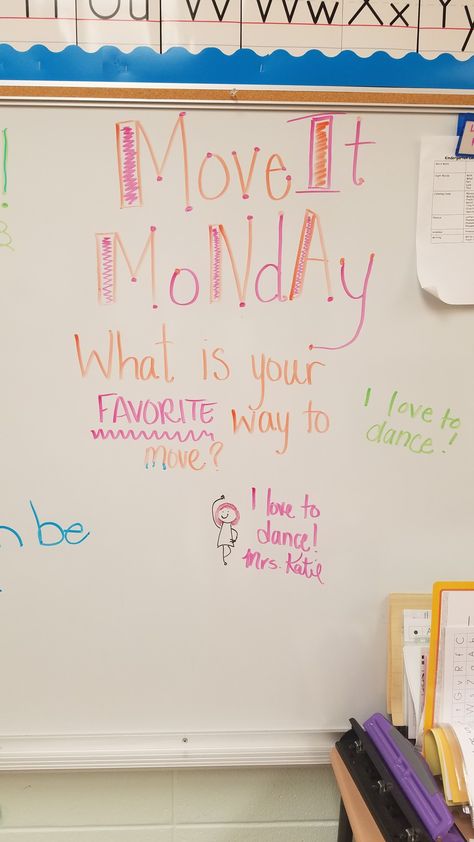 Uu Vv Ww Xx Yy
Move It
Monday
What is your
FAVORITE way to
move?
I love to
dance!
I love to
dance!
Mrs. Katie
n be